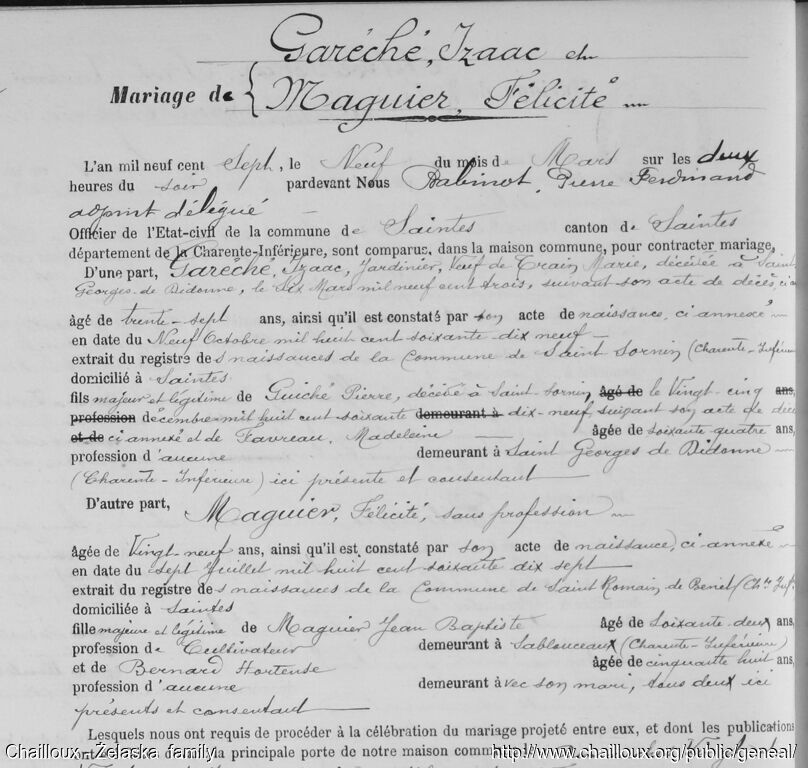 Garéché, Izaac et
Mariage de { Maguier, Félicité
L'an mil neuf cent Sept, le Neuf du mois de Mars sur les deux
heures du soir pardevant Nous Babinot, Pierre Ferdinand
adjoint délégué
Officier de l'Etat-civil de la commune de Saintes canton de Saintes
département de la Charente-Inférieure, sont comparus, dans la maison commune, pour contracter mariage,
D'une part, Garéché, Izaac, Jardinier, Veuf de Train Marie, décédée à Saint
Georges de Didonne, le Six Mars mil neuf cent trois, suivant son acte de décès, ci a
âgé de trente-sept ans, ainsi qu'il est constaté par son acte de naissance, ci annexé
en date du Neuf Octobre mil huit cent soixante dix neuf
extrait du registre des naissances de la Commune de Saint Sornin (Charente-Inférieure
domicilié à Saintes
fils majeur et légitime de Guiché Pierre, décédé à Saint-Sornin, âgé de le Vingt-cinq ans,
profession décembre mil huit cent soixante demeurant à dix-neuf, suivant son acte de décè
et de ci annexé et de Favreau, Madeleine âgée de soixante quatre ans,
profession d'aucune demeurant à Saint Georges de Didonne
(Charente-Inférieure) ici présente et consentant
D'autre part, Maguier, Félicité, sans profession
âgée de Vingt-neuf ans, ainsi qu'il est constaté par son acte de naissance, ci annexé
en date du sept Juillet mil huit cent soixante dix sept
extrait du registre des naissances de la Commune de Saint Romain de Benet (Chte Infre
domiciliée à Saintes
fille majeure et légitime de Maguier Jean Baptiste âgé de Soixante-deux ans,
profession de Cultivateur demeurant à Sablonceaux (Charente-Inférieure)
et de Bernard Hortense âgée de cinquante huit ans,
profession d'aucune demeurant avec son mari, tous deux ici
présents et consentant
Lesquels nous ont requis de procéder à la célébration du mariage projeté entre eux, et dont les publications
la principale porte de notre maison comm
Chailloux - Żelaska family http://www.chailloux.org/public/geneal/